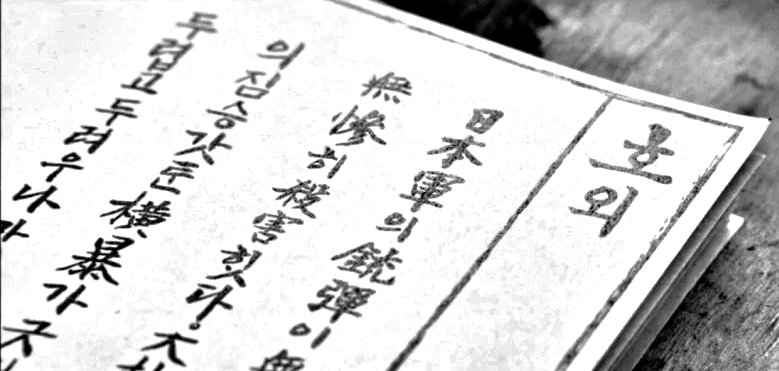 호외
日本軍의銃彈이
無慘히殺害힛다.
의짐승갓튼橫暴가
두렵고두려우나